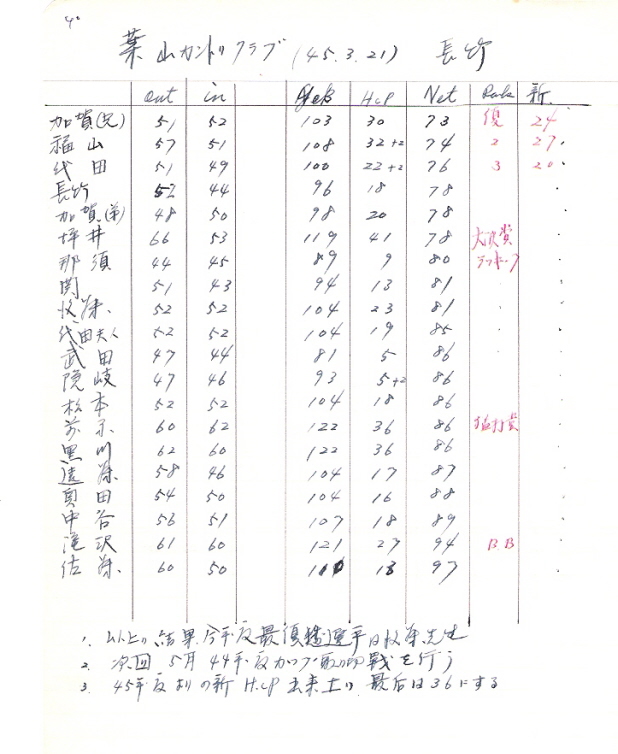 葉山カントリクラブ (45.3.21) 長竹
out in Net HcP Net Rank 新.
加賀(兄) 51 52 103 30 73 優 24.
福山 57 51 108 32+2 74 2 27.
代田 51 49 100 22+2 76 3 20.
長竹 52 44 96 18 78
加賀(弟) 48 50 98 20 78
坪井 66 53 119 41 78 大波賞
那須 44 45 89 9 80 ラッキー7
関 51 43 94 13 81
牧野 52 52 104 23 81
代田夫人 52 52 104 19 85
武田 47 44 81 5 86
隠岐 47 46 93 5+2 86
松本 52 52 104 18 86
60 62 122 36 86
黒川 62 60 122 36 86
遠藤 58 46 104 17 87
奥田 54 50 104 16 88
中谷 56 51 107 18 89
滝沢 61 60 121 27 94 B B
佐藤 60 50 110 13 97
1. 以上の結果 今年度最優秀選手は
2. 次回 5月 44年度カップ取切戦を行う
3. 45年度よりの新 H.cP 出来上り 最后は36にする